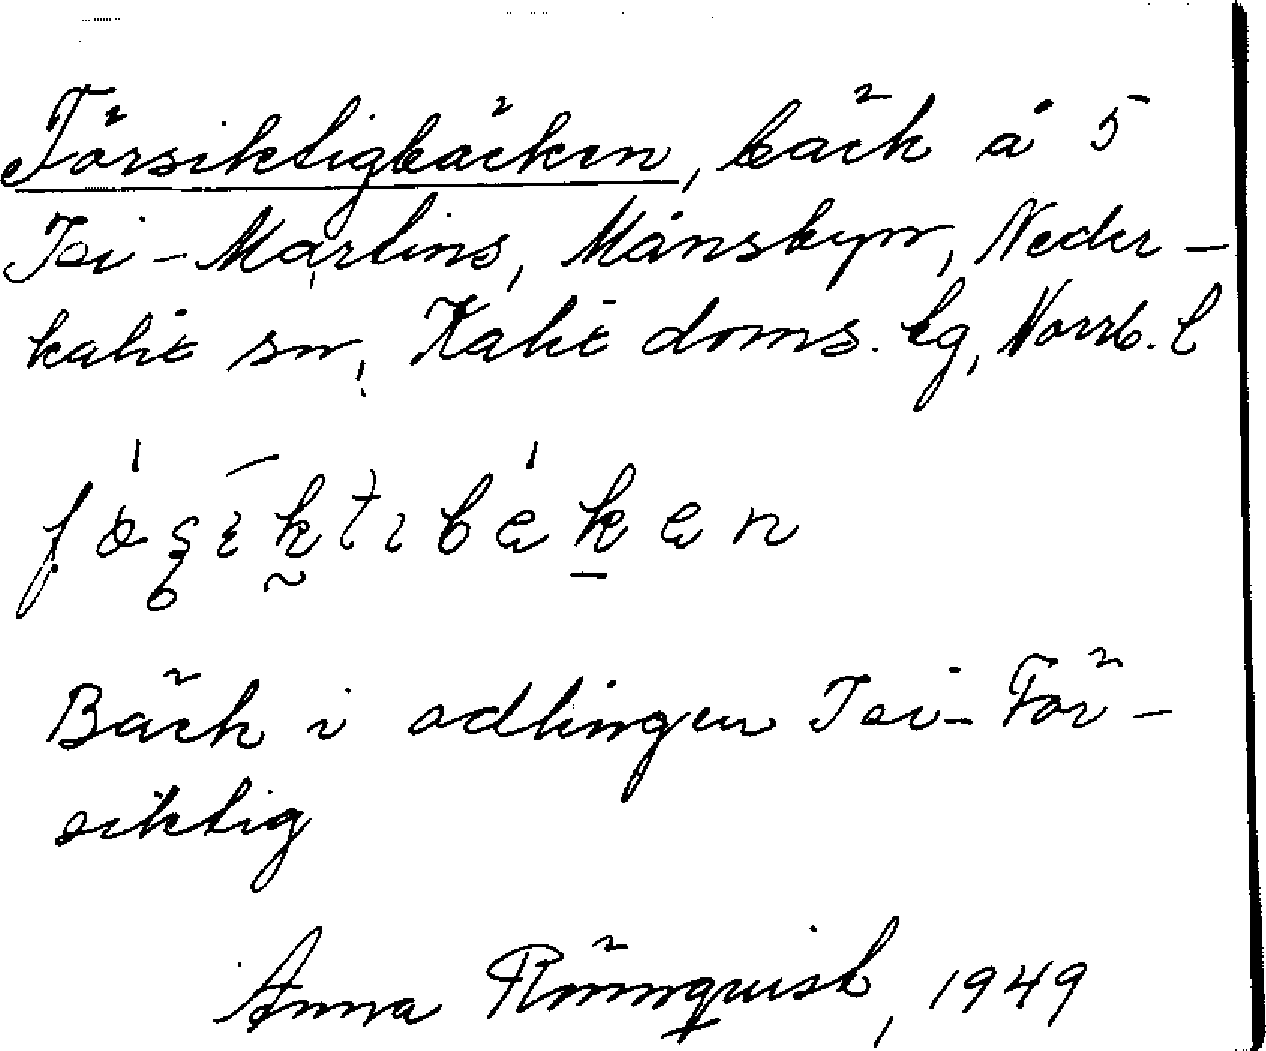 Försiktigbäcken, bäck å 5
Tei-Martins, Månsbyn, Neder-
kalix sn, Kalix doms. tg, Norrb. l
Bäck i odlingen Tei-För-
siktig
Anna Rönnquist, 1949